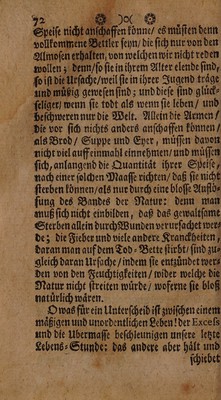 72
Speise nicht anschaffen könne/ es müsten denn
vollkommene Bettler seyn/ die sich nur von den
Almosen erhalten/ von welchen wir nicht reden
wollen; denn/ so sie in ihrem Alter elende sind/
so ist die Ursache/ weil sie in ihrer Jugend träge
und müßig gewesen sind; und diese sind glück-
seliger/ wenn sie todt als wenn sie leben/ und
beschweren nur die Welt. Allein die Armen/
die vor sich nichts anders anschaffen können/
als Brod/ Suppe und Eyer/ müssen davon
nicht viel auff einmahl einnehmen/ und müssen
sich/ anlangend die Quantität ihrer Speise/
nach einer solchen Maasse richten/ daß sie nicht
sterben können/ als nur durch eine blosse Auflö-
sung des Bandes der Natur: denn man
muß sich nicht einbilden/ daß das gewaltsame
Sterben allein durch Wunden verursachet wer-
de; die Fieber und viele andere Kranckheiten/
daran man auf dem Tod-Bette stirbt/ sind zu-
gleich daran Ursache/ indem sie entzündet wer-
den von den Feuchtigkeiten/ wider welche die
Natur nicht streiten würde/ woferne sie bloß
natürlich wären.
O was für ein Unterscheid ist zwischen einem
mäßigen und unordentlichen Leben! der Excess
und die Ubermasse beschleunigen unsere letzte
Lebens-Stunde: das andere aber hält und
schiebet